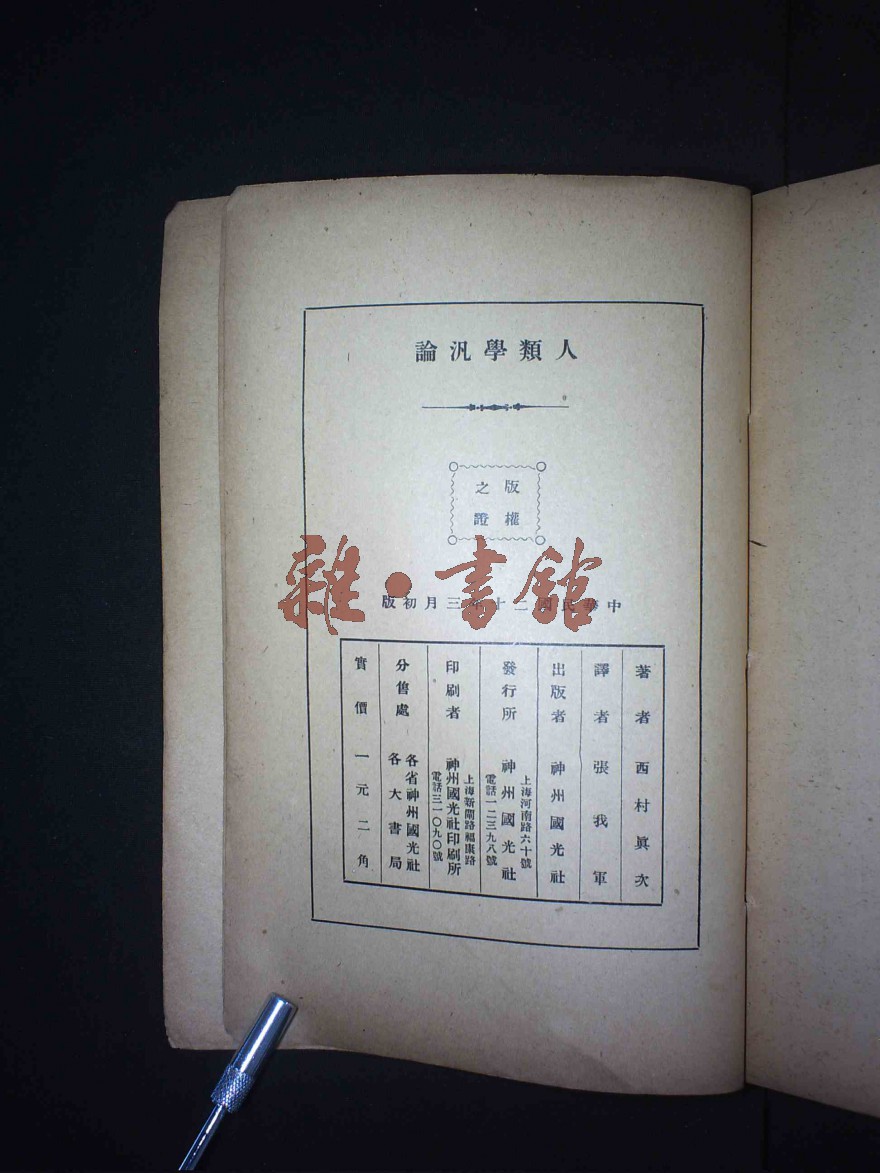 人類學汎論
版權
之證
中華民國二十年三月初版
著者 西村眞次
譯者 張我軍
出版者 神州國光社
上海河南路六十號
發行所 神州國光社
電話一二三九八號
上海新閘路福康路
印刷者 神州國光社印刷所
電話三一〇九〇號
分售處 各省神州國光社
各大書局
實價 一元二角
雜·書館